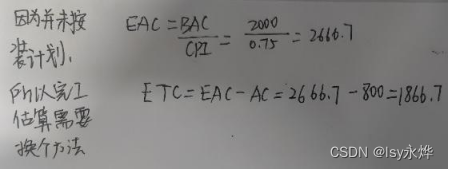 因为并未按
装计划,
所以完工
估算需要
换个方法
EAC = BAC / CPI = 2000 / 0.75 = 2666.7
ETC = EAC - AC = 2666.7 - 800 = 1866.7
CSDN @lsy永烨